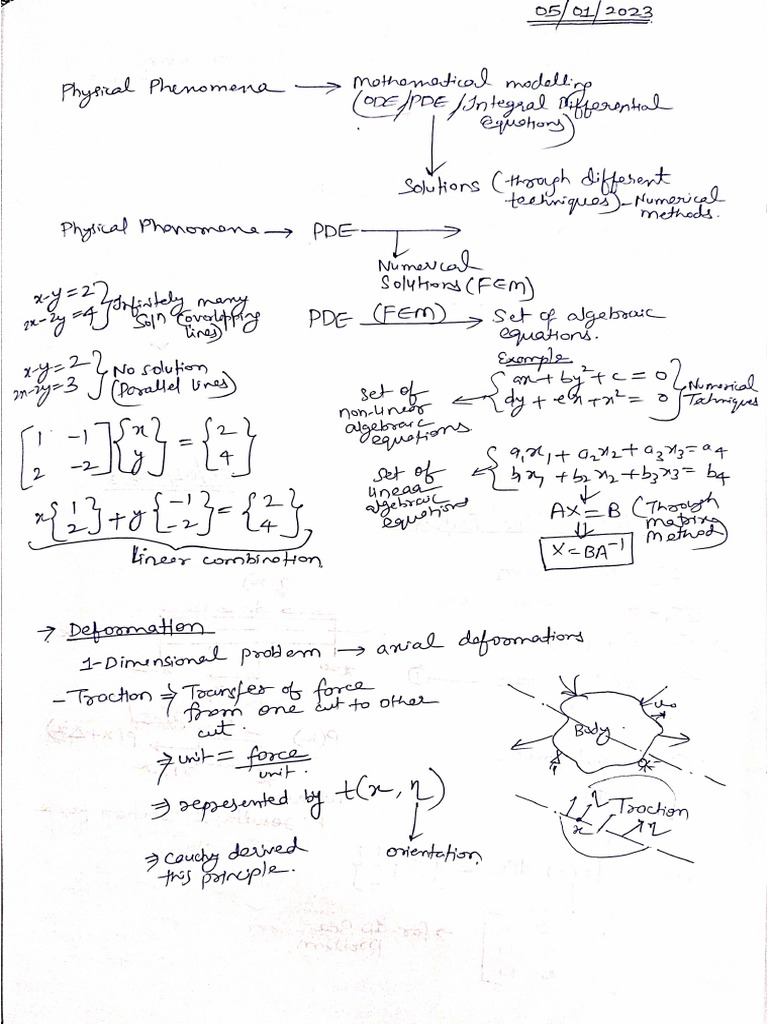 05/01/2023
Physical Phenomena → Mathematical modelling
(ODE/PDE/Integral Differential
equations)
Solutions (through different
techniques) - Numerical
methods.
Physical Phenomena → PDE →
Numerical
Solutions (FEM)
x-y=2
2x-2y=4 } Infinitely many
Soln (overlapping
lines)
PDE (FEM) → Set of algebraic
equations.
Example
x-y=2
2x-2y=3 } No solution
(Parallel lines)
set of
non-linear
algebraic
equations
ax + by² + c = 0
dy + ex + x² = 0
Numerical
Techniques
[1 -1
2 -2] {x
y} = {2
4}
set of
linear
algebraic
equations
a₁x₁ + a₂x₂ + a₃x₃ = a₄
bx₁ + b₂x₂ + b₃x₃ = b₄
x{1
2} + y{-1
-2} = {2
4}
Linear combination
AX = B (Through
matrix
Method)
X = BA⁻¹
→ Deformation
1-Dimensional problem → axial deformations
- Traction ⇒ Transfer of force
from one cut to other
cut.
⇒ unit = force
unit.
⇒ represented by t(x, η)
orientation
⇒ Cauchy derived
this principle.
Body
u₀
η Traction
x
η